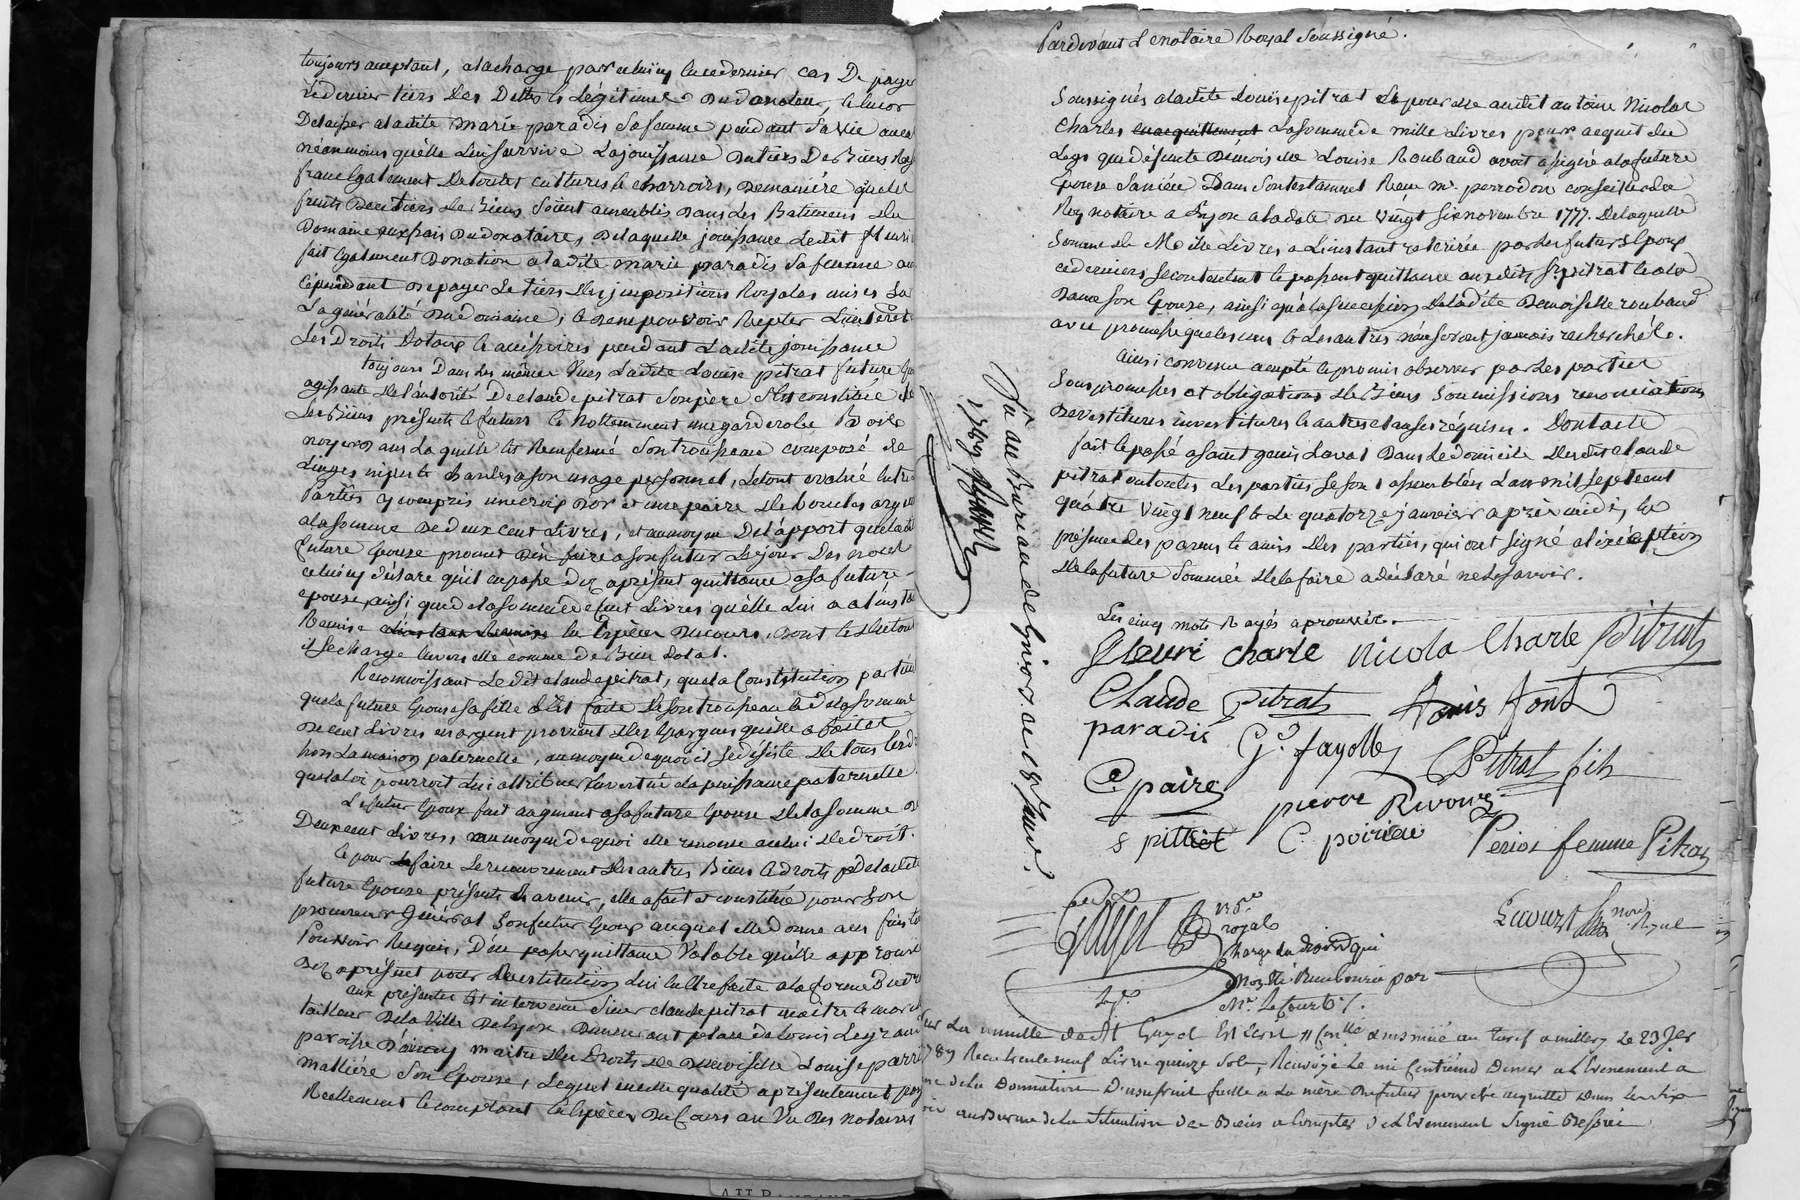 toujours acceptant, à la charge par celui cy en ce dernier cas De payer
le dernier tiers Des Dettes & Légitimes du donateur, & encor
Delaisser a ladite marie paradis Sa femme pendant Sa vie au cas
néanmoins qu'elle Lui Survive La jouissance du tiers Des Biens
franc Egalement De toutes cultures & charrois, De maniére que les
fruits De ce tiers De Biens Soient ameublis dans Les Batimens du
Domaine aux frais du donataire, De laquelle jouissance Ledit fleuri
fait Egalement Donation a ladite marie paradis Sa femme
Cependant De payer Le tiers Des impositions Royales mises Sur
La généralité du domaine, & De ne pouvoir Repeter L'interêt
Les Droits Dotaux & accessoires pendant Ladite jouissance
toujours Dans Les mêmes Vues Ladite Louise pitrat future
agissante De l'autorité De claude pitrat Son père S'est constitué
Ses Biens présents & futurs & Nottemment une garderobe Bois
noyer dans Laquelle Est Renfermé Son trousseau composé de
Linges nipes & hardes a Son usage personnel, Le tout évalué entre
Parties y compris une croix D'or et une paire De boucles
a la somme De deux cent Livres, et au moyen De l'apport que la
future Epouse promet D'en faire a Son futur Le jour Des noces
celui cy déclare qu'il en passe dez aprésent quittance a sa future
epouse, ainsi que de la Somme de Cent Livres qu'elle Lui a a l'instant
Remise En Espèces Du cours, Dont &
il Se charge Envers elle comme de Bien Dotal.
Reconnoissant Le dit claude pitrat, que la Constitution
que la future Epouse Sa fille S'est faite De Son trousseau & De la Somme
De cent Livres en argent provient Des Epargnes qu'elle a faites
hors La maison paternelle, au moyen de quoi il Se désiste De tous
que la loi pourroit Lui attribuer En vertu de la puissance paternelle
Le futur Epoux fait augment a sa future Epouse De la Somme
Deux cent Livres, au moyen de quoi elle renonce a celui De droit.
Et pour faire Le recouvrement Des autres Biens & droits De ladite
future Epouse présents & avenir, elle a fait et constitué pour Son
procureur Général Son futur Epoux auquel elle donne aux fins
Pouvoir Requis, D'en passer quittance Valable qu'elle approuve
Dez aprésent pour & Restitution Lui En Etre faite a la forme Du dr
aux présentes Est intervenu Sieur claude pitrat maitre & marchand
tailleur De la Ville De Lyon, Demeurant place de Louis Legrand
paroisse D'ainay maitre Des Droits De Demoiselle Louise
mallière Son Epouse, Lequel en cette qualité a présentement
Réellement & comptant En Espèces Du Cours au Vu Des notaires
Pardevant Le notaire Royal Soussigné.
Soussignés a ladite Louise pitrat & pour elle audit antoine Nicolas
Charles La somme de mille Livres pour acquit du
Legs que défunte Demoiselle Louise Roubaud avoit assigné a la future
Epouse Sa nièce Dans Son testament Reçu Mr. perrodon conseiller du
Roy notaire a Lyon a la date du vingt Six novembre 1777. De laquelle
Somme De Mille Livres a L'instant retirée par Les futurs Epoux
ces derniers Se contentent & passent quittance auxdits Sr. pitrat & a la
Dame Son Epouse, ainsi qu'a la Succession De ladite Demoiselle roubaud
avec promesse que Les uns & Les autres n'en Seront jamais recherchés.
ainsi convenu accepté & promis observer par Les parties
Sous promesses et obligations De Biens Soumissions renonciations
Devestitures investitures & autres clauses réquises. Dont acte
fait & passé a Saint genis Laval Dans Le domicile Dudit claude
pitrat ou toutes Les parties Se Sont assemblées L'an mil Sept cent
quatre Vingt neuf & Le quatorze janvier après midi, En
présence Des parens & amis Des parties, qui ont Signé a l'exception
De la future Sommée De le faire a déclaré ne Le Savoir.
Les cinq mots Rayés approuvés.
fleuri charle nicola Charle Pitrat
Claude Pitrat Louis font
paradis G. fayolle Pitrat fils
C. paire pierre Rivoire
C. poiriac Perior femme Pitrat
Guyot
royal
Lecourt
Nore. Royal
charge du droit qui
m'ont Eté Rembourcé par
Mr. Lecourt
Vu au bureau de Givors ce 18 Janvr.
1789
Sur La minute de Mt Guyot Est Ecrit Conlle & insinué au tarif a millery Le 23 Jer
1789 Reçu trente neuf Livres quinze Sols, Renvoyé Le mi Centième Denier a L'Evenement a
De La Donnation D'usufruit faitte a La mère du futur pour etre acquitté Dans Les Six
au Bureau de La Situation Des Biens a Compter De L'Evenement Signé Bessée